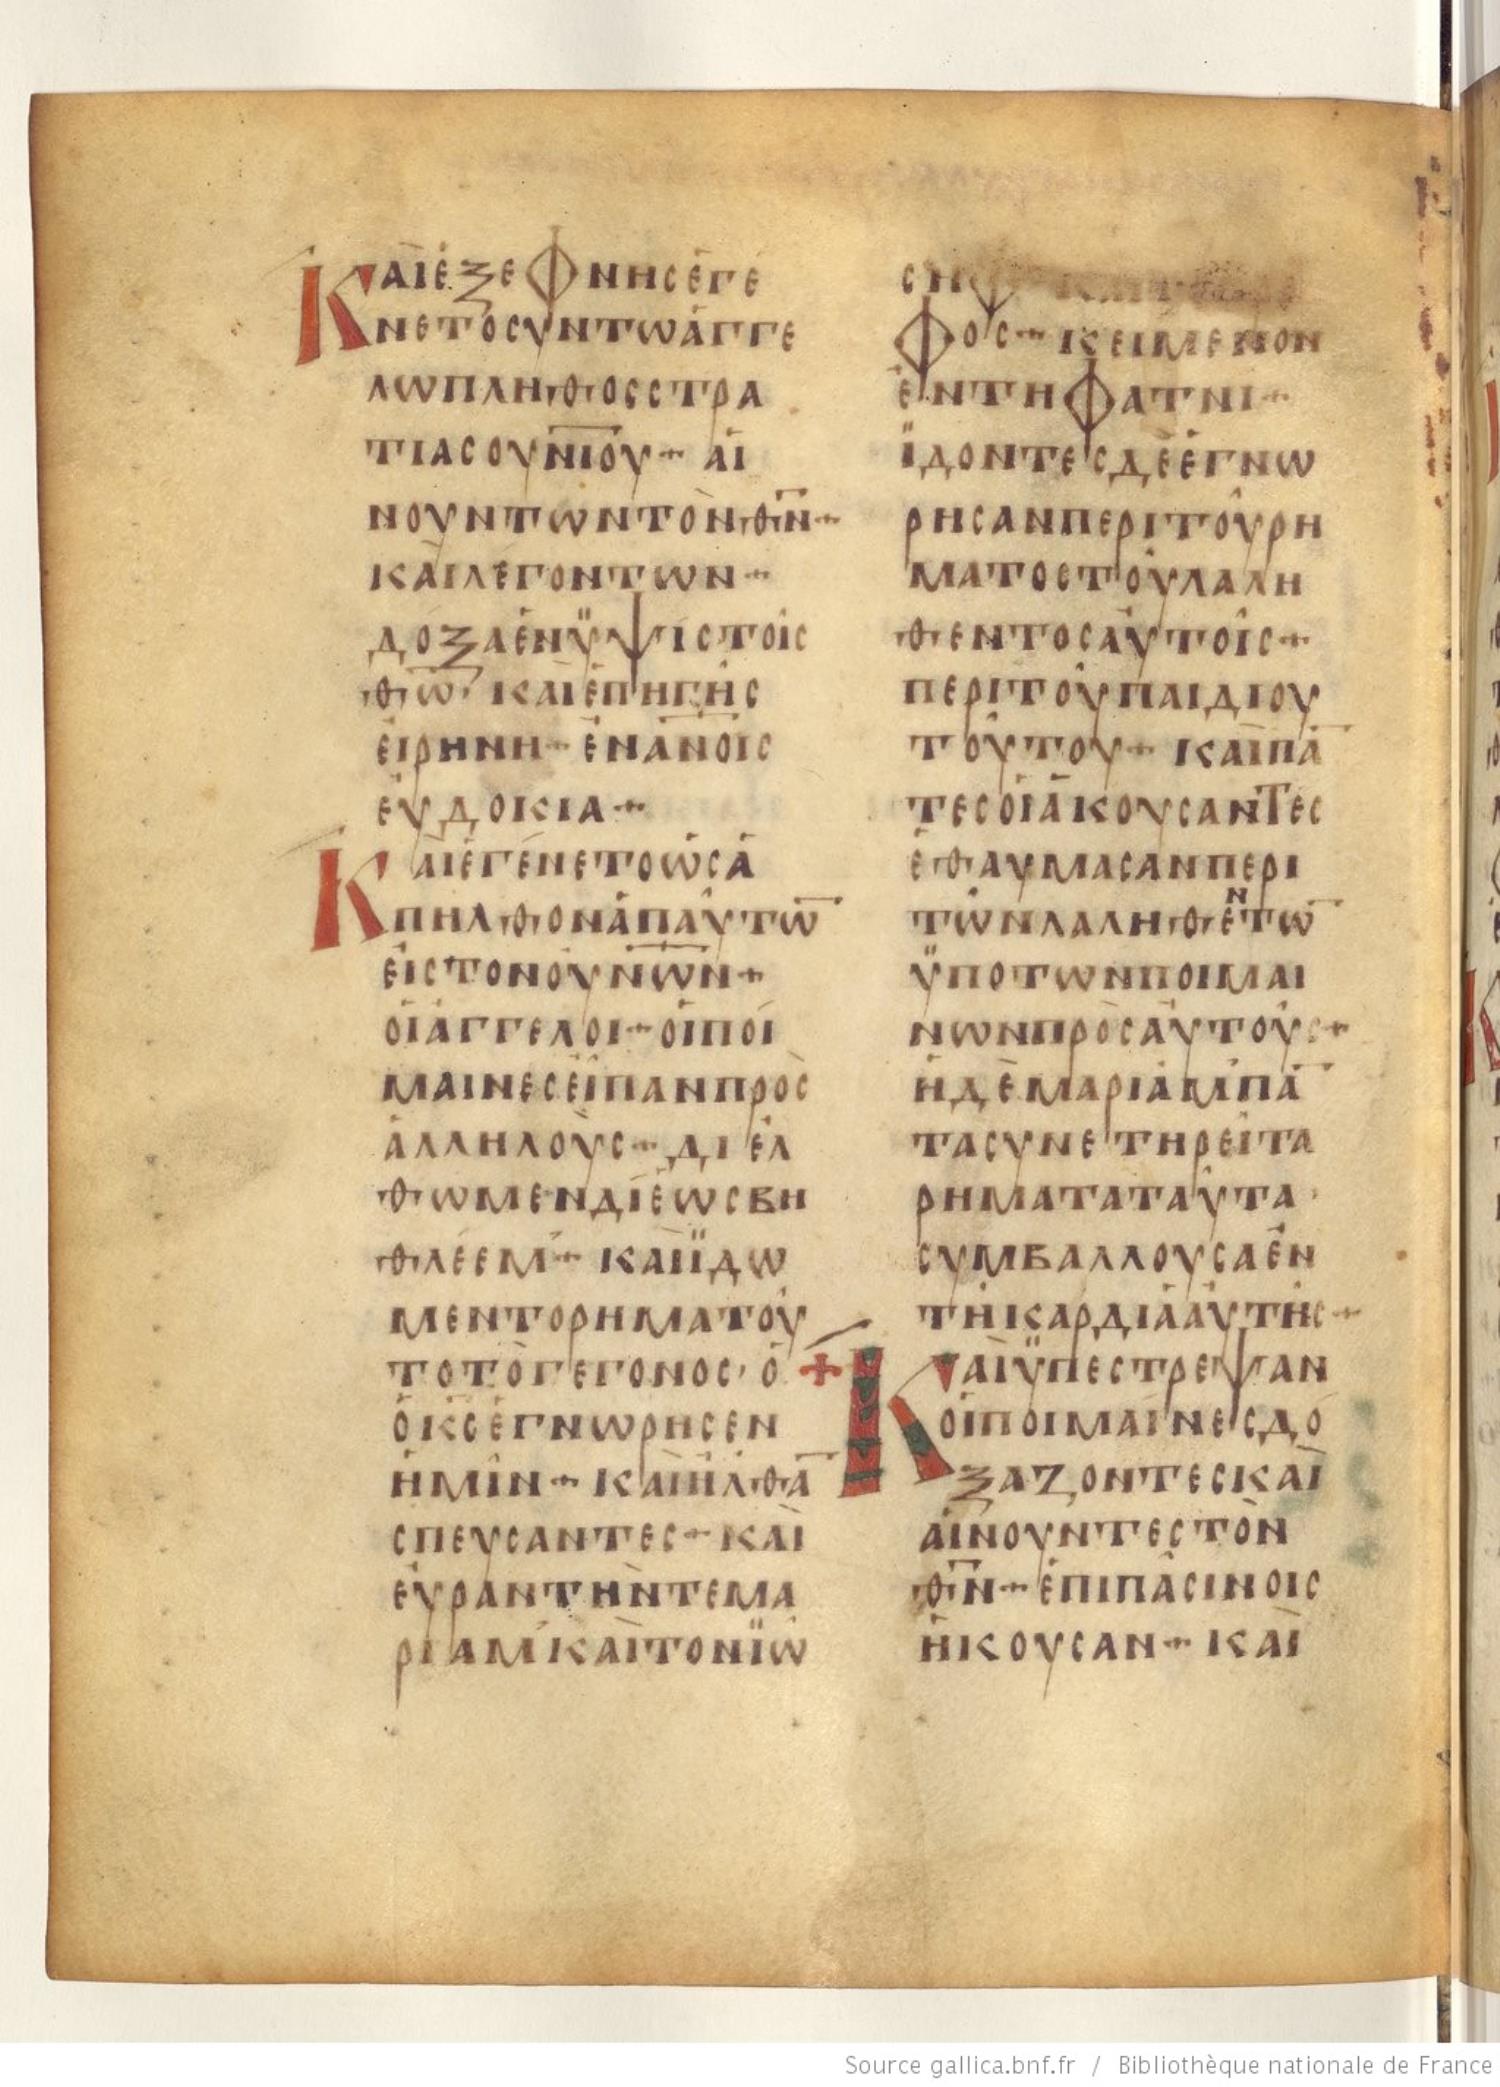 ΚΑΙ ΕΞΕΦΝΗΣ ΕΓΕ
ΝΕΤΟ ΣΥΝ ΤΩ ΑΓΓΕ
ΛΩ ΠΛΗΘΟΣ ΣΤΡΑ
ΤΙΑΣ ΟΥΝΙΟΥ + ΑΙ
ΝΟΥΝΤΩΝ ΤΟΝ ΘΝ +
ΚΑΙ ΛΕΓΟΝΤΩΝ +
ΔΟΞΑ ΕΝ ΥΨΙΣΤΟΙΣ
ΘΩ ΚΑΙ ΕΠΗ ΓΗΣ
ΕΙΡΗΝΗ + ΕΝ ΑΝΟΙΣ
ΕΥΔΟΚΙΑ +
ΚΑΙ ΕΓΕΝΕΤΟ ΩΣ Α
ΠΗΛΘΟΝ ΑΠ ΑΥΤΩ
ΕΙΣ ΤΟΝ ΟΥΝΩΝ +
ΟΙ ΑΓΓΕΛΟΙ + ΟΙ ΠΟΙ
ΜΑΙΝΕΣ ΕΙΠΑΝ ΠΡΟΣ
ΑΛΛΗΛΟΥΣ + ΔΙΕΛ
ΘΩΜΕΝ ΔΙ ΕΩΣ ΒΗ
ΘΛΕΕΜ + ΚΑΙ ΪΔΩ
ΜΕΝ ΤΟ ΡΗΜΑ ΤΟΥ
ΤΟ ΤΟ ΓΕΓΟΝΟΣ · Ο
Ο ΚΣ ΕΓΝΩΡΗΣΕΝ
ΗΜΙΝ + ΚΑΙ ΗΛΘΑ
ΣΠΕΥΣΑΝΤΕΣ + ΚΑΙ
ΕΥΡΑΝ ΤΗΝ ΤΕ ΜΑ
ΡΙΑΜ ΚΑΙ ΤΟΝ ΪΩ
ΣΗΦ ΚΑΙ Τ
ΦΟΣ + ΚΕΙΜΕΝΟΝ
ΕΝ ΤΗ ΦΑΤΝΙ +
ΪΔΟΝΤΕΣ ΔΕ ΕΓΝΩ
ΡΗΣΑΝ ΠΕΡΙ ΤΟΥ ΡΗ
ΜΑΤΟΣ ΤΟΥ ΛΑΛΗ
ΘΕΝΤΟΣ ΑΥΤΟΙΣ +
ΠΕΡΙ ΤΟΥ ΠΑΙΔΙΟΥ
ΤΟΥΤΟΥ + ΚΑΙ ΠΑ
ΤΕΣ ΟΙ ΑΚΟΥΣΑΝΤΕΣ
ΕΘΑΥΜΑΣΑΝ ΠΕΡΙ
ΤΩΝ ΛΑΛΗΘΕΝΤΩ
ΫΠΟ ΤΩΝ ΠΟΙΜΑΙ
ΝΩΝ ΠΡΟΣ ΑΥΤΟΥΣ +
Η ΔΕ ΜΑΡΙΑΜ ΠΑ
ΤΑ ΣΥΝΕΤΗΡΕΙ ΤΑ
ΡΗΜΑΤΑ ΤΑΥΤΑ ·
ΣΥΜΒΑΛΛΟΥΣΑ ΕΝ
ΤΗ ΚΑΡΔΙΑ ΑΥΤΗΣ +
+ ΚΑΙ ΫΠΕΣΤΡΕΨΑΝ
ΟΙ ΠΟΙΜΑΙΝΕΣ ΔΟ
ΞΑΖΟΝΤΕΣ ΚΑΙ
ΑΙΝΟΥΝΤΕΣ ΤΟΝ
ΘΝ + ΕΠΙ ΠΑΣΙΝ ΟΙΣ
ΗΚΟΥΣΑΝ + ΚΑΙ
Source gallica.bnf.fr / Bibliothèque nationale de France